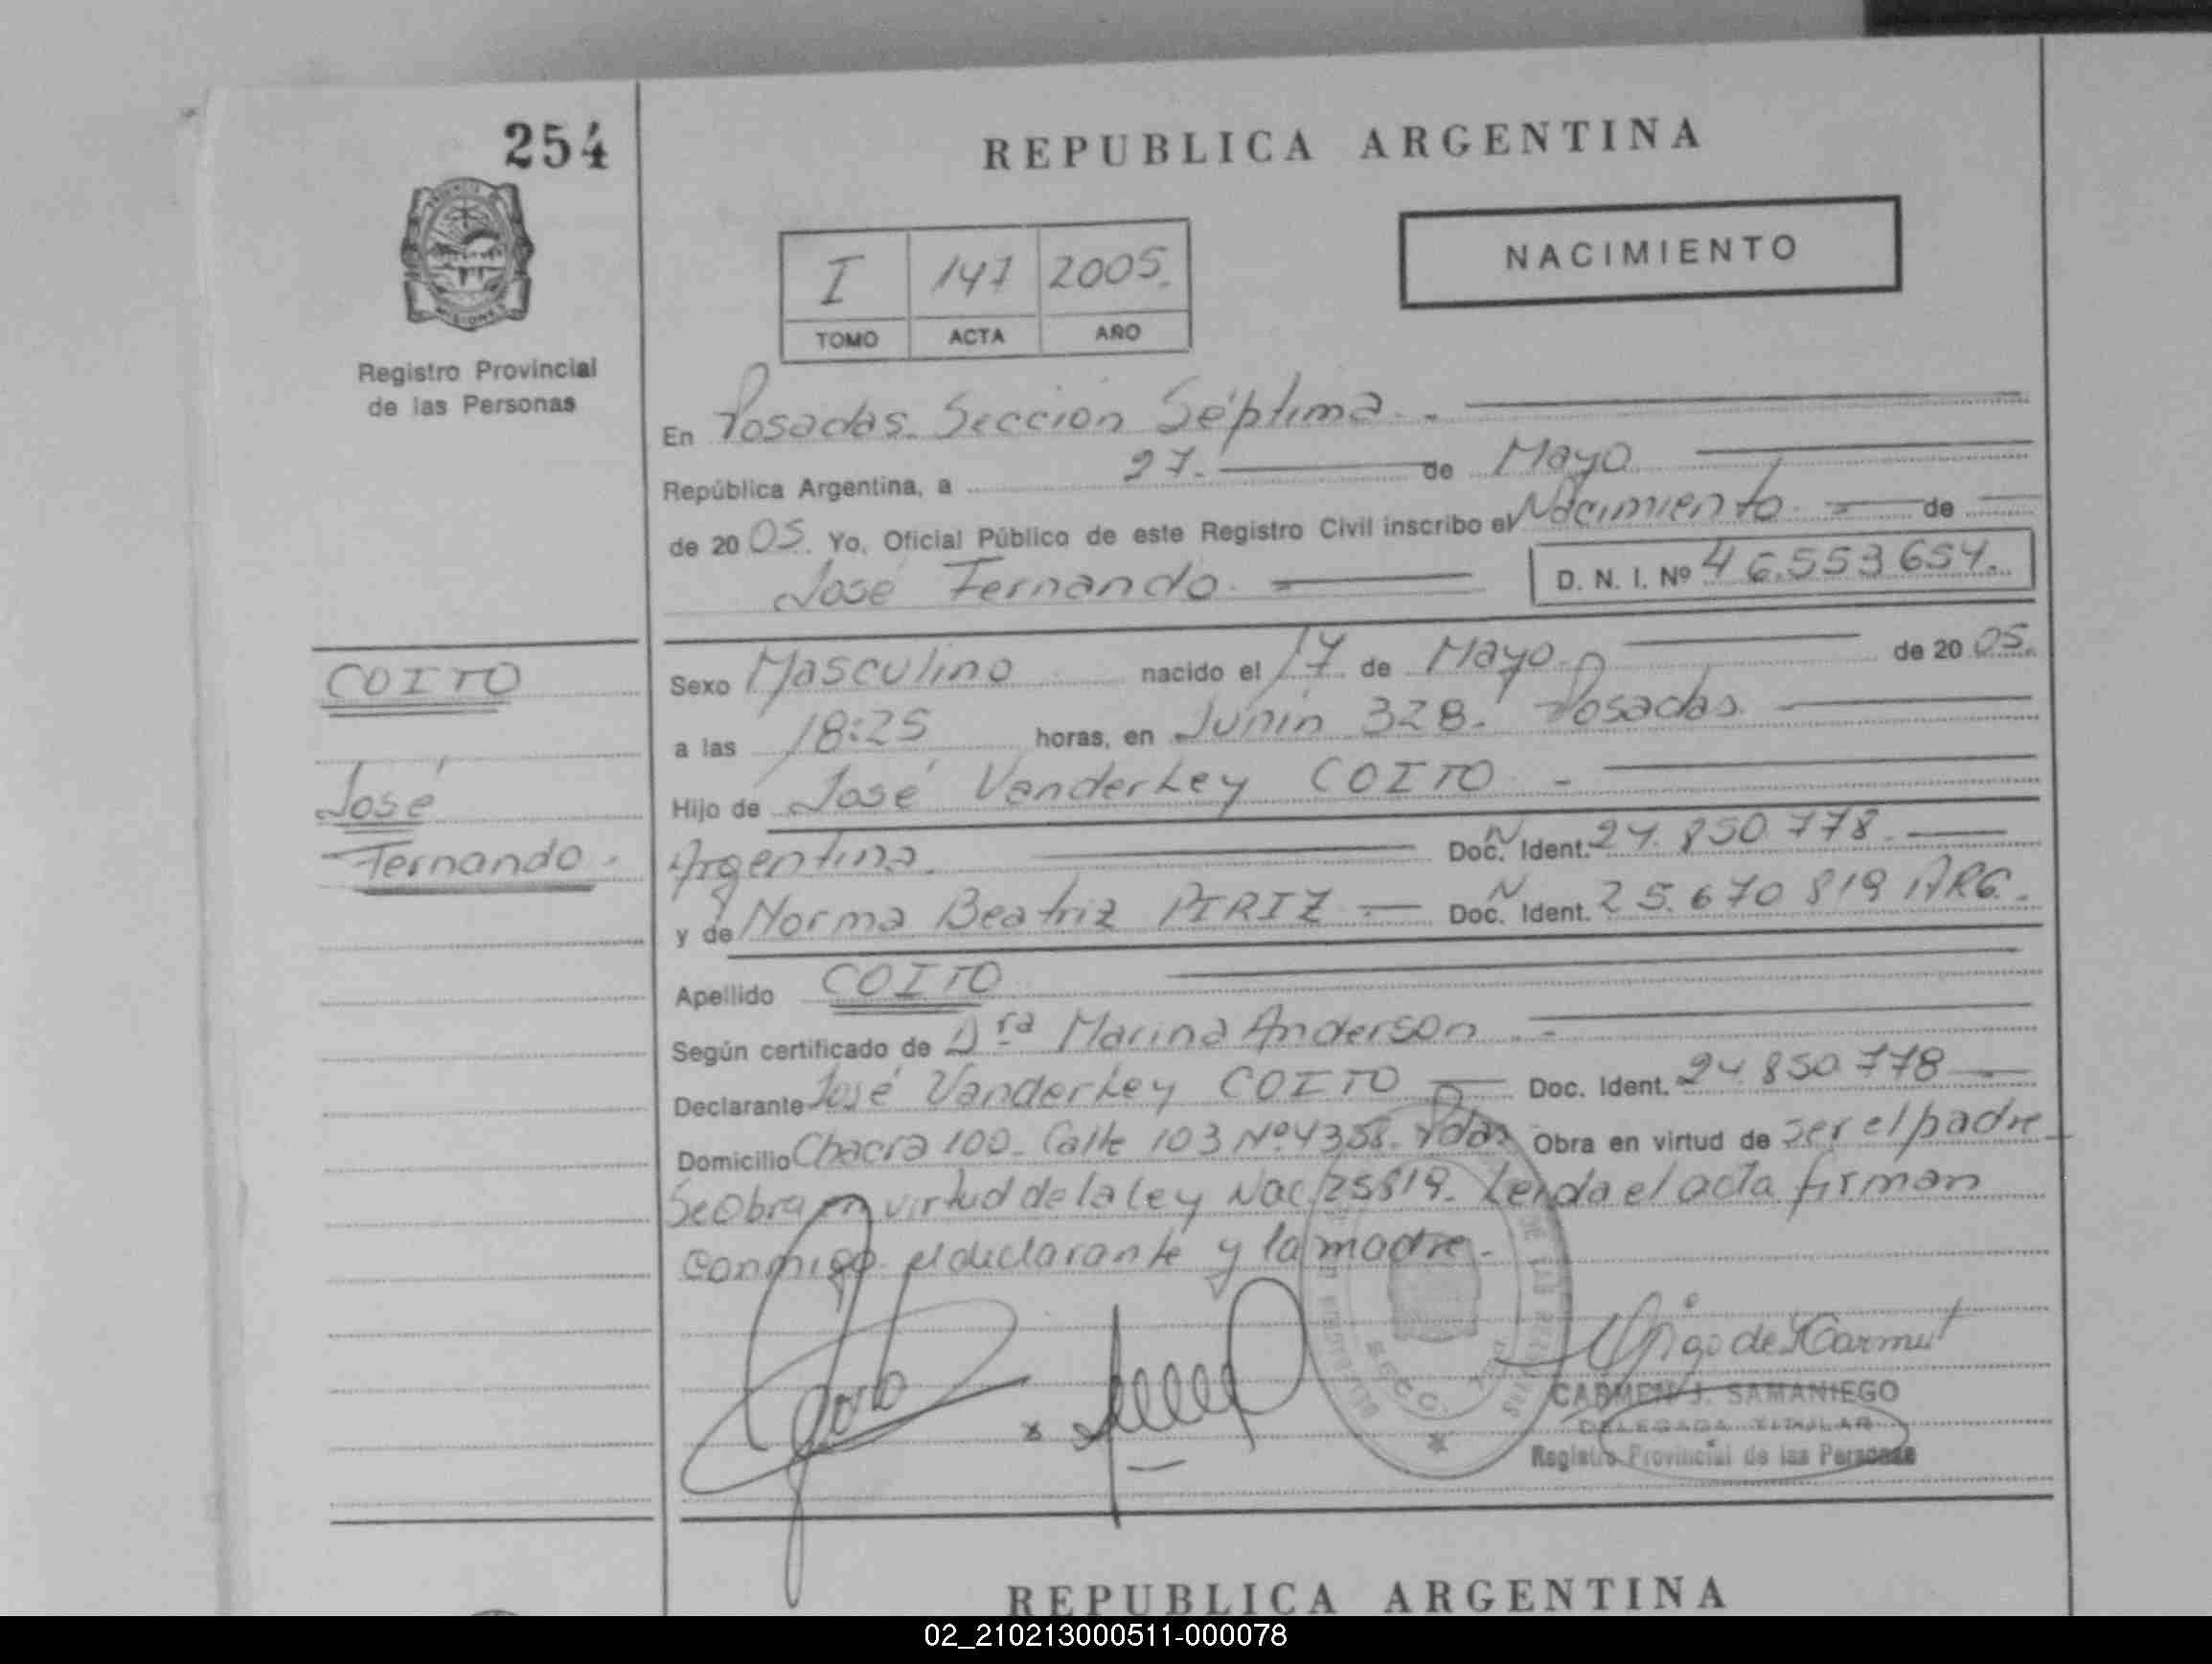 254
REPUBLICA ARGENTINA
NACIMIENTO
I 147 2005.
TOMO ACTA AÑO
Registro Provincial
de las Personas
En Posadas. Sección Séptima. -
República Argentina, a 27. de Mayo
de 2005. Yo, Oficial Público de este Registro Civil inscribo el Nacimiento de
José Fernando. D. N. I. Nº 46.553654.
COITO
José
Fernando.
Sexo Masculino nacido el 17 de Mayo. de 2005.
a las 18:25 horas, en Junin 328. Posadas.
Hijo de José Vanderley COITO -
Argentina. Doc. N Ident. 24.850.778.
y de Norma Beatriz PIRIZ - Doc. N Ident. 25.670 819 ARG.
Apellido COITO
Según certificado de Dra Marina Anderson -
Declarante José Vanderley COITO Doc. Ident. 24.850.778
Domicilio Chacra 100. Calle 103 Nº 4358. Pdas Obra en virtud de ser el padre
Se Obra en virtud de la Ley Nac 25819. Leida el acta firman
conmigo el declarante y la madre.
CARMEN J. SAMANIEGO
DELEGADA TITULAR
Registro Provincial de las Personas
REPUBLICA ARGENTINA
02_210213000511-000078